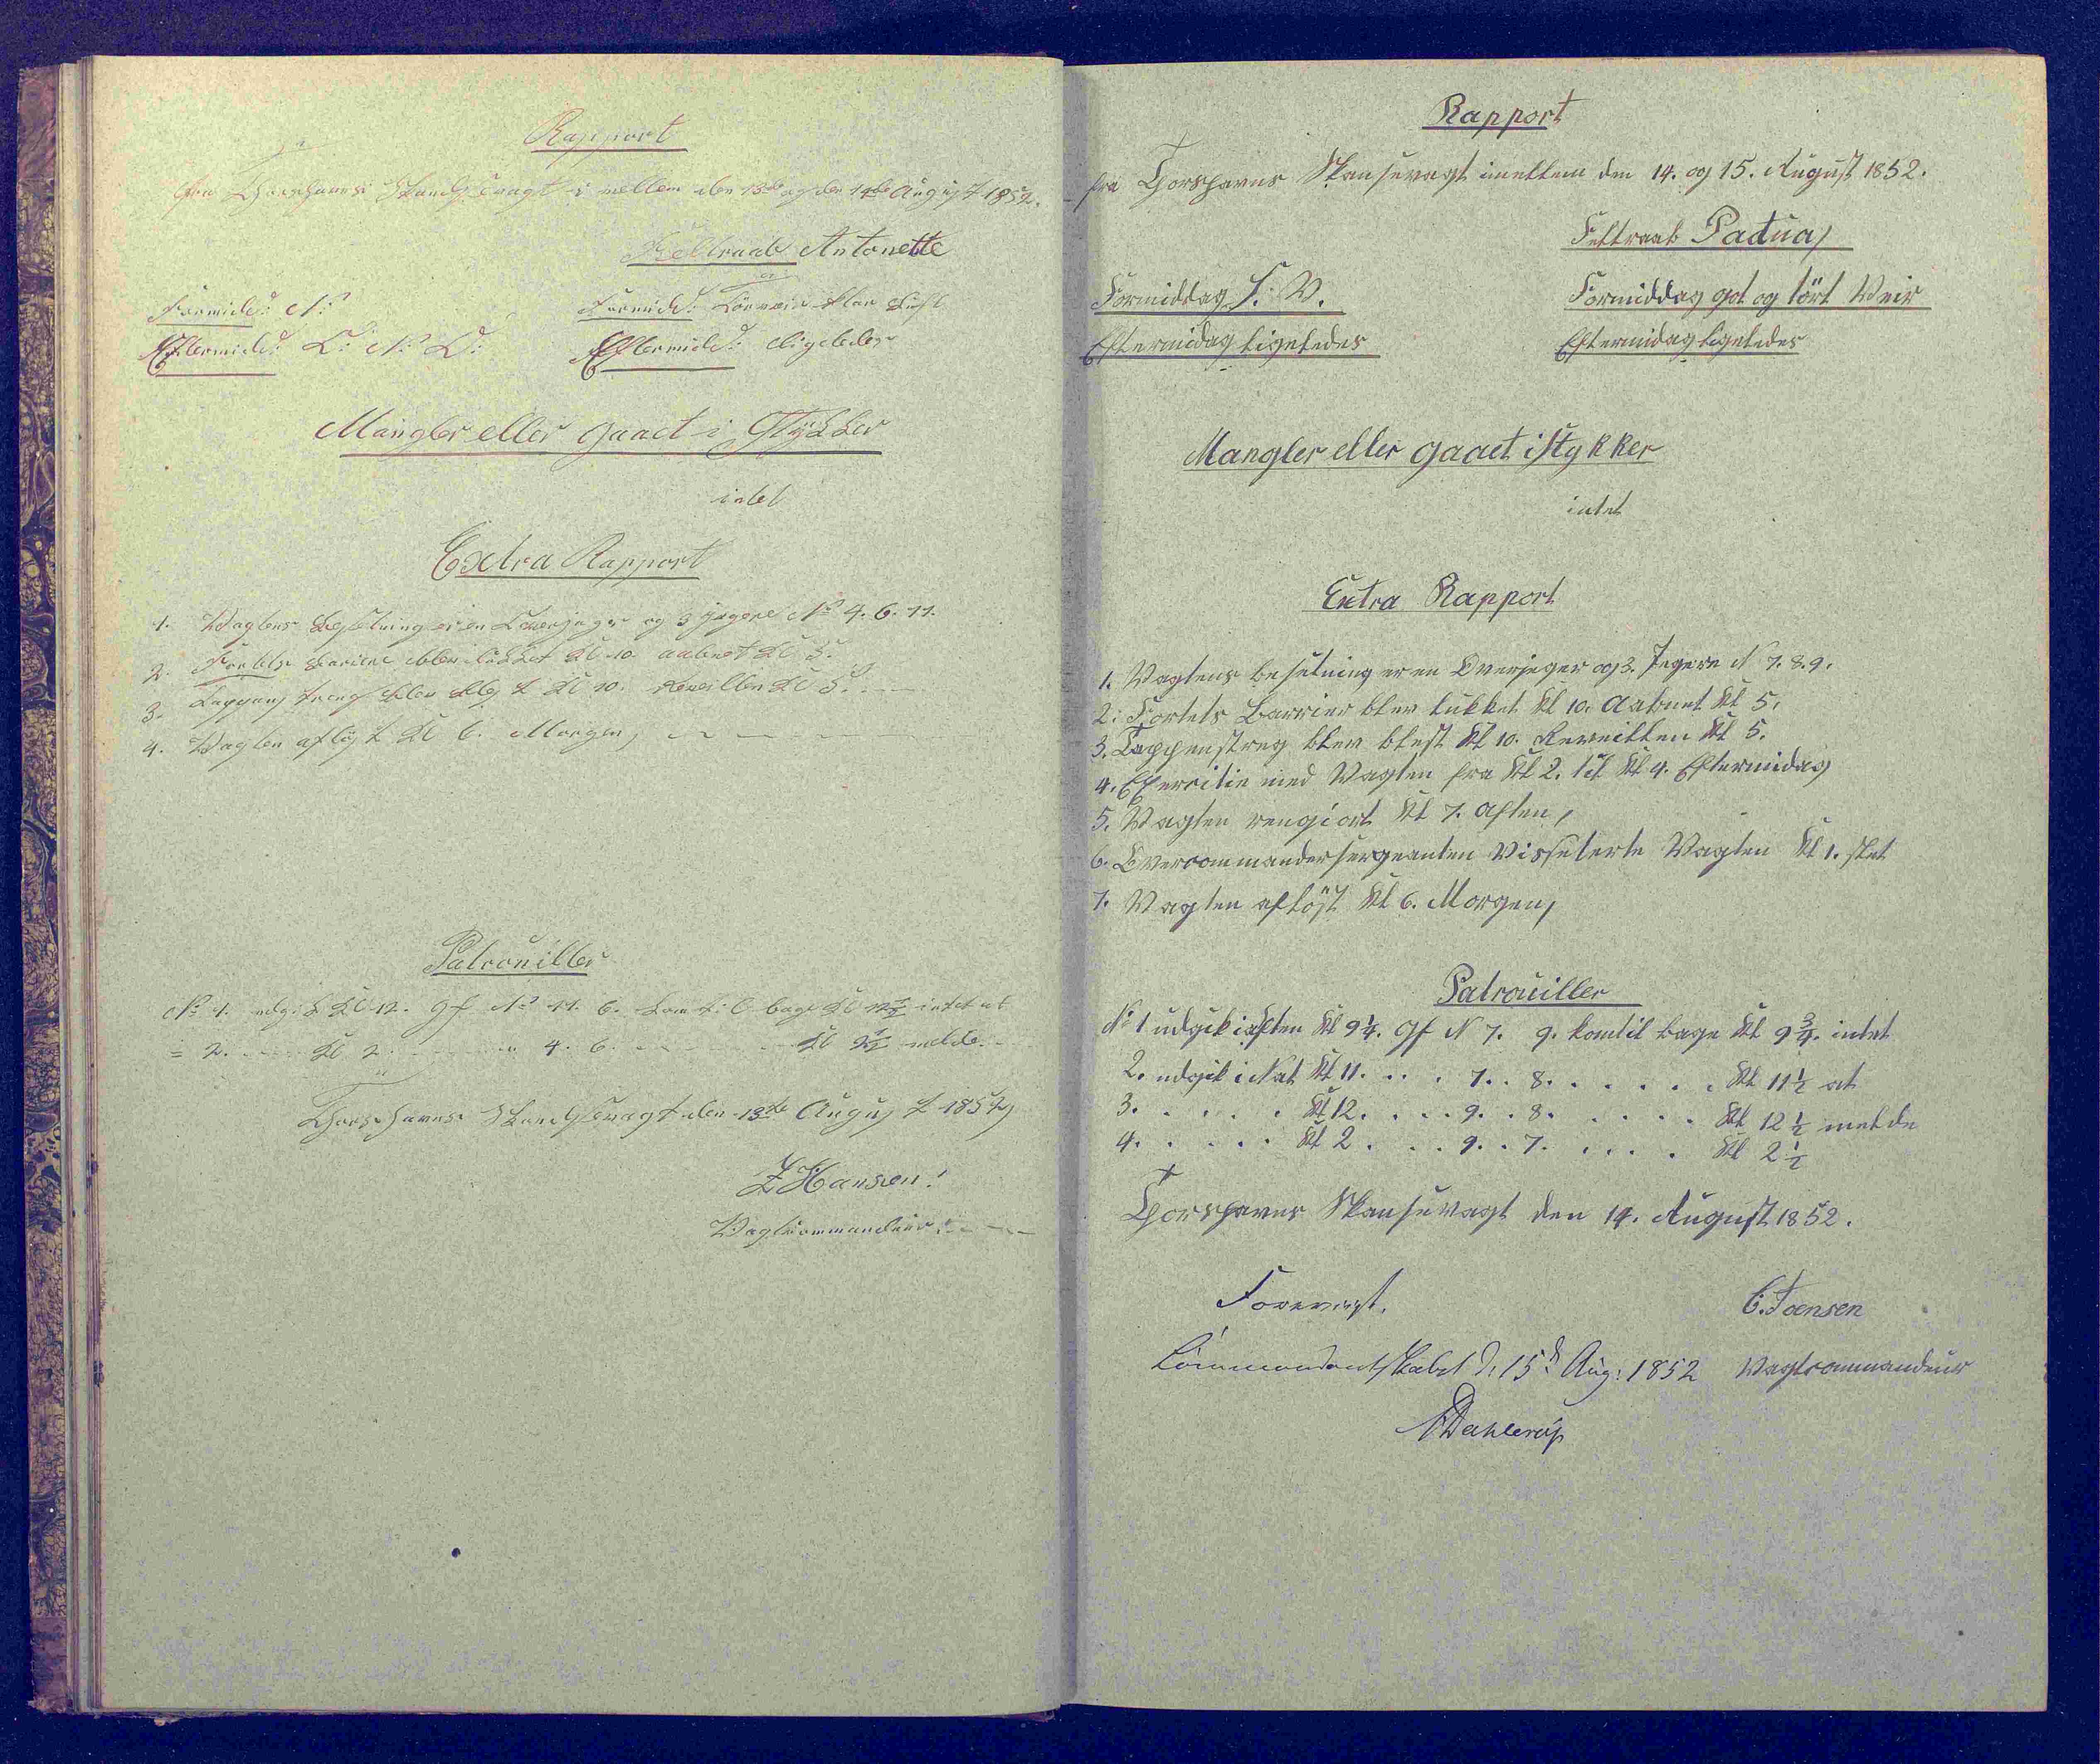 Rapport
fra Thorshavns Skandsevagt i mellem den 13de og den 14de August 1852.
Feltraab Antonette
Formidd: N:
Formidd: Törveir klar Luft
Eftermidd: O: N: O:
Eftermidd: ligeledes
Mangler eller gaaet i Stykker
intet
Extra Rapport
1. Vagtens Besetning er en Overjeger og 3 jegere No 4. 6. 11.
2. Fortets Bariere blev lukket Kl 10. aabnet Kl 5.
3. Tappenstreg blev blest Kl 10. Reveillen Kl 5.
4. Vagten aflöst Kl 6. Morgen,
Patrouiller
No 1. udgik Kl 12. Gf No 11. 6. kom tilbage Kl 12½ intet at
= 2. Kl 2. 4. 6. Kl 2½ melde.
Thorshavns Skandsevagt den 13de August 1852,
Z Hansen:
Vagtcommandeur:
Rapport
fra Thorshavns Skansevagt imellem den 14. og 15. August 1852.
Feltraab Padua,
Formiddag S: V.
Formiddag got og tört Veir
Eftermidag ligeledes
Eftermidag ligeledes
Mangler eller gaaet istykker
intet
Extra Rapport
1. Vagtens besetning er en Overjeger og 3. Jegere N 7. 8. 9.
2: Fortets Barrier blev lukket Kl 10. Aabnet Kl 5.
3. Tappenstreg blev blest Kl 10. Reveillen Kl 5.
4. Exersitie med Vagten fra Kl 2. til Kl 4. Eftermidag
5. Vagten rengiort Kl 7. Aften,
6. Overcommandersergeanten Vissiterte Vagten Kl 1. slet
7. Vagten aflöst Kl 6. Morgen,
Patrouiller
No 1 udgik i aften Kl 9¼. Gf N 7. 9. kom til bage Kl 9¾. intet
2. udgik i Nat Kl 11. . . . 7. . 8. . . . . . . Kl 11½ at
3. . . . . . Kl 12. . . . 9. . 8. . . . . . Kl 12½ melde
4. . . . . . Kl 2. . . . 9. . 7. . . . . . Kl 2½
Thorshavns Skansevagt den 14. August 1852.
Forevist.
C. Joensen
Commandantskabet d: 15d Aug: 1852
Vagtcommandeur
Dahlerup